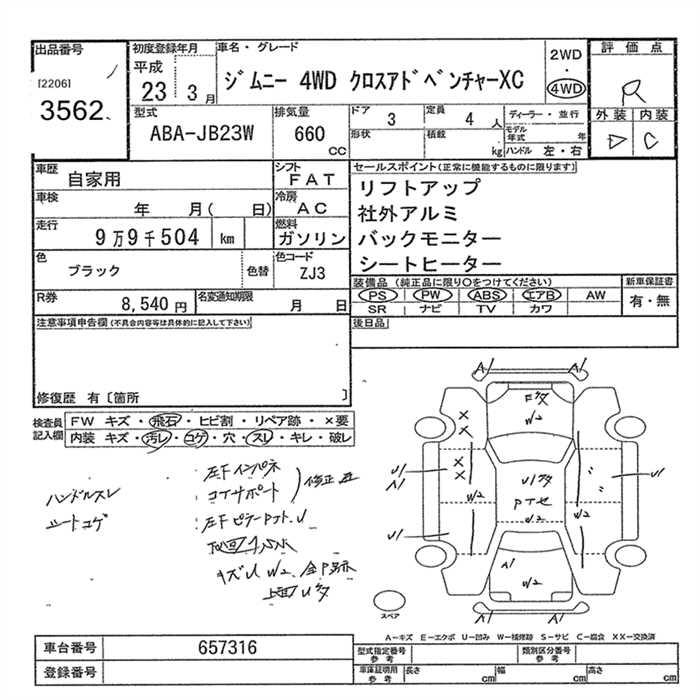 出品番号
[2206]
3562
初度登録年月
平成
23 3月
車名・グレード
ジムニー 4WD クロスアドベンチャーXC
2WD
・
4WD
評価点
R
外装 内装
D C
型式
ABA-JB23W
排気量
660
CC
ドア
3
定員
4 人
形状
積載
kg
ディーラー・並行
モデル年式 年
ハンドル 左・右
車歴
自家用
シフト
FAT
車検
年 月( 日)
冷房
AC
走行
9万9千504 km
燃料
ガソリン
色
ブラック
色替
色コード
ZJ3
R券
8,540円
名変通知期限
月 日
セールスポイント(正常に機能するものに限ります)
リフトアップ
社外アルミ
バックモニター
シートヒーター
装備品(純正品に限り○をつけてください)
PS PW ABS エアB AW
SR ナビ TV カワ
新車保証書
有・無
後日品
注意事項申告欄(不具合内容等は具体的に記入して下さい)
修復歴 有〔箇所 〕
検査員記入欄
FW キズ・飛石・ヒビ割・リペア跡・×要
内装 キズ・汚レ・コゲ・穴・スレ・キレ・破レ
ハンドルスレ
シートコゲ
左Fインパネ
コアサポート
修正
左Fピラー
キズU W2
A1
A1
Fタ
W2
U1
A1
W2
U1
W2
U1
W2
U1
W2
A1
W2
A1
スペア
A-キズ E-エクボ U-凹み W-補修跡 S-サビ C-腐食 XX-交換済
車台番号
657316
登録番号
型式指定番号
参考
類別区分番号
参考
車庫証明用
参考
長さ cm
幅 cm
高さ cm